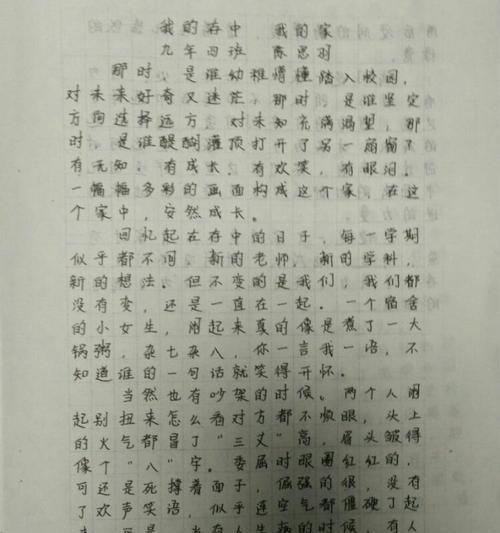 我的存中 我的家
九年四班 陈思羽
那时,是谁幼稚懵懂踏入校园,
对未来好奇又迷茫,那时,是谁坚定
方向选择远方,对未知充满渴望,那
时,是谁醍醐灌顶打开了另一扇窗了
有无知,有成长,有欢笑,有眼泪。
一幅幅多彩的画面构成这个家,在这
个家中,安然成长。
回忆起在存中的日子,每一学期
似乎都不同,新的老师,新的学科,
新的想法。但不变的是我们,我们都
没有变,还是一直在一起。一个宿舍
的小女生,闹起来真的像是煮了一大
锅粥,杂七杂八,你一言我一语,不
知道谁的一句话就笑得开怀。
当然也有吵架的时候。两个人闹
起别扭来怎么看对方都不顺眼,头上
的火气都冒了“三丈”高,眉头皱得
像个“八”字。委屈时眼圈红红的,
可还是死撑着面子,倔强的很,没有
了欢声笑语,似乎连空气都僵硬了起
生病的时候,有人